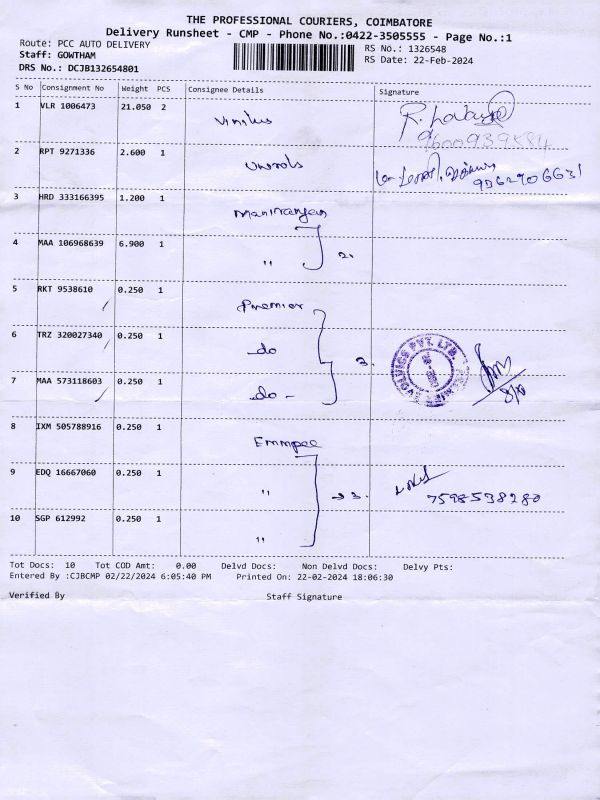 THE PROFESSIONAL COURIERS, COIMBATORE
Delivery Runsheet - CMP - Phone No.:0422-3505555 - Page No.:1
Route: PCC AUTO DELIVERY
RS No.: 1326548
Staff: GOWTHAM
RS Date: 22-Feb-2024
DRS No.: DCJB132654801
S No Consignment No Weight PCS Consignee Details Signature
1 VLR 1006473 21.050 2
9600939584
2 RPT 9271336 2.600 1
9362906631
3 HRD 333166395 1.200 1 Maniranjan
4 MAA 106968639 6.900 1 " 2.
5 RKT 9538610 0.250 1 Premier
6 TRZ 320027340 0.250 1 -do 3.
7 MAA 573118603 0.250 1 -do-
8 IXM 505788916 0.250 1 Emmpee
9 EDQ 16667060 0.250 1 " → 3. 7598538280
10 SGP 612992 0.250 1 "
Tot Docs: 10 Tot COD Amt: 0.00 Delvd Docs: Non Delvd Docs: Delvy Pts:
Entered By :CJBCMP 02/22/2024 6:05:40 PM Printed On: 22-02-2024 18:06:30
Verified By Staff Signature